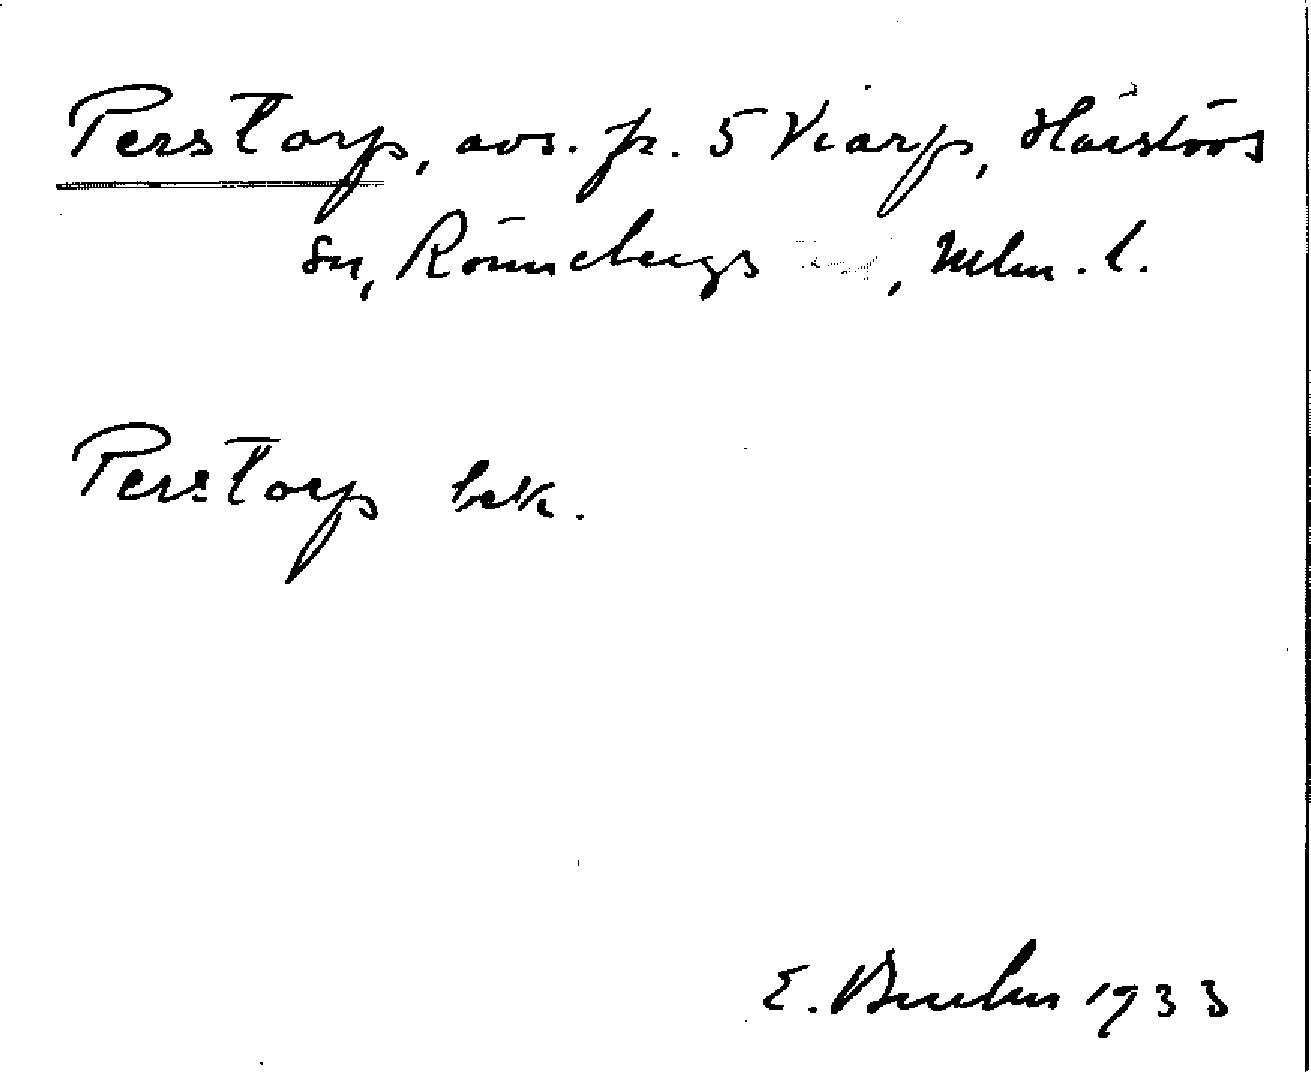 Perstorp, avs. fr. 5 Viarp, Härslövs
sn, Rönnebergs , Mlm. l.
Perstorp bek.
E. 1933